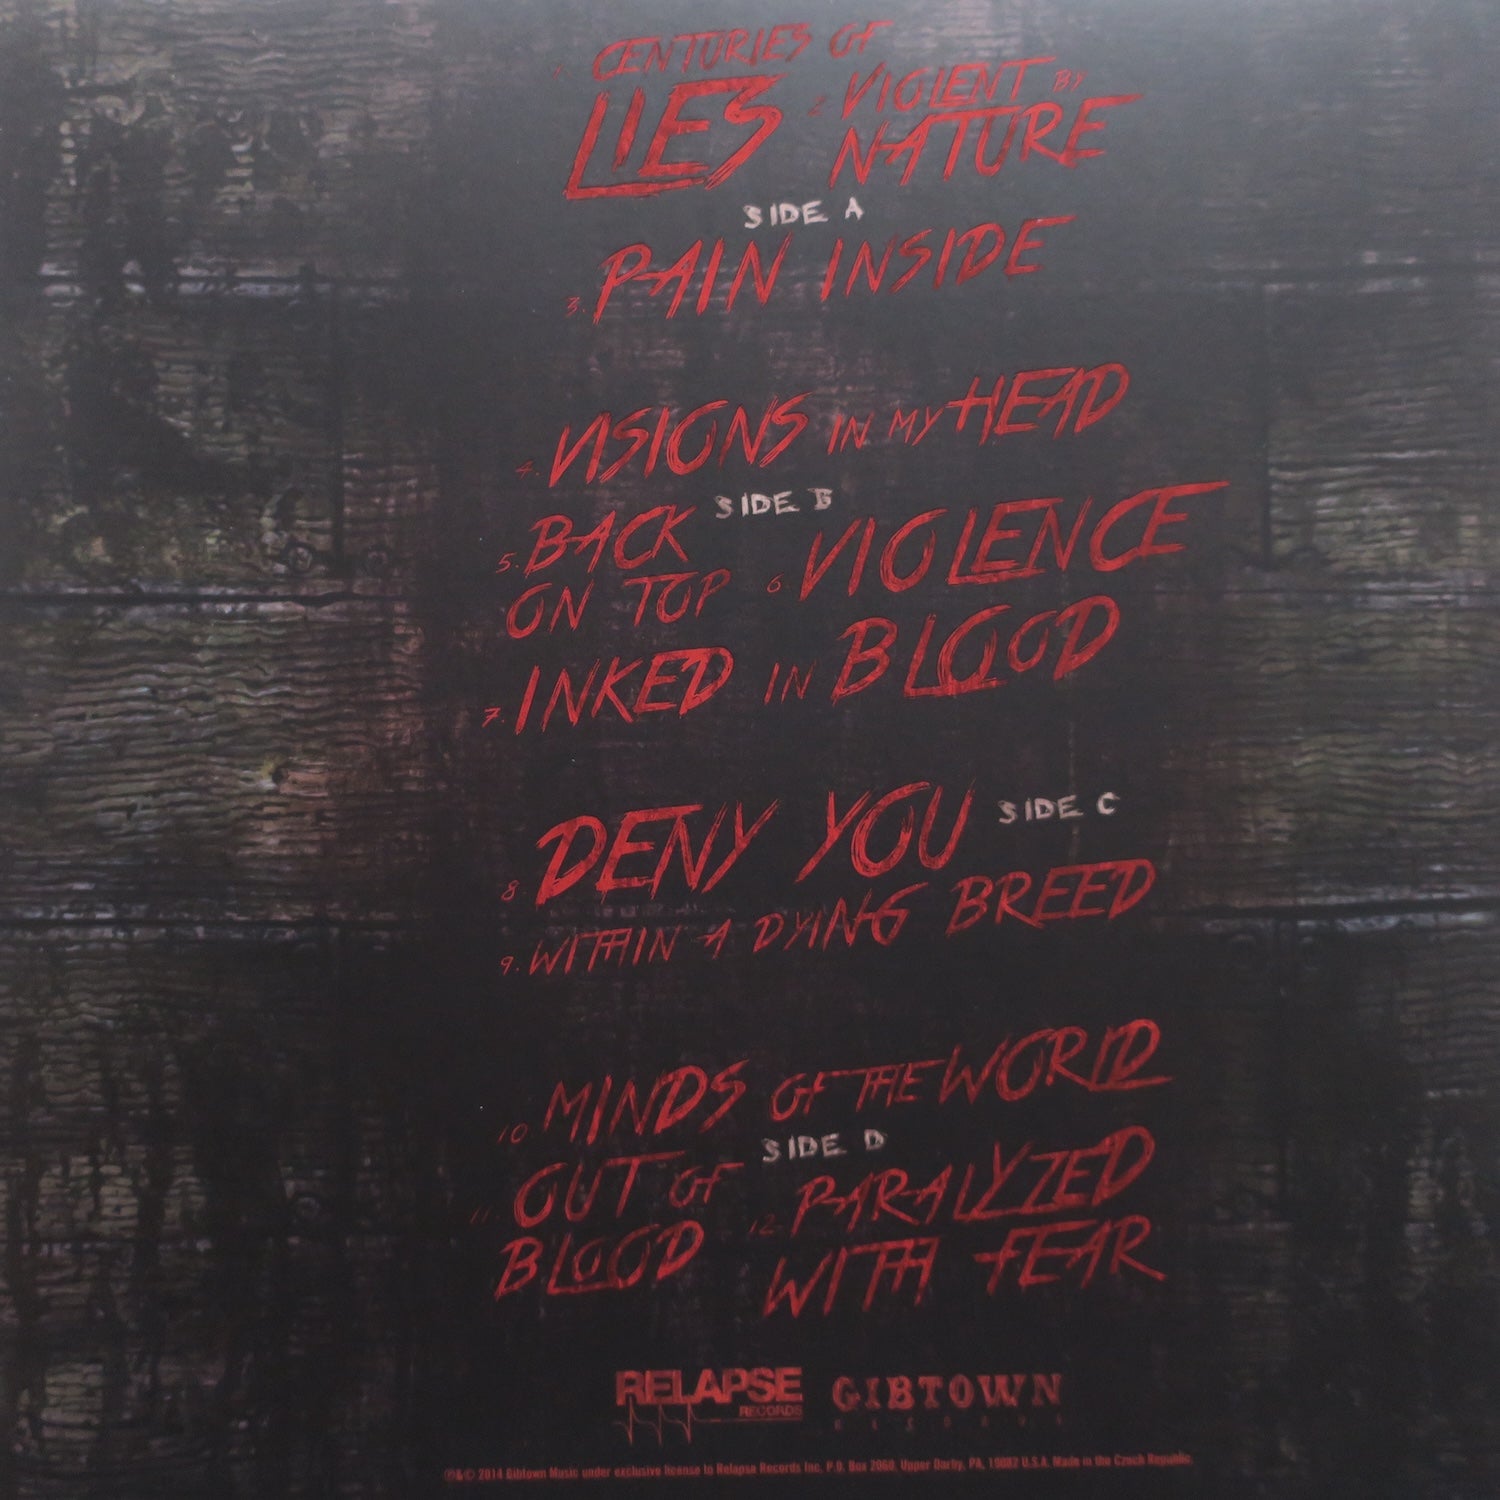 1. CENTURIES OF
LIES
2. VIOLENT BY
NATURE
SIDE A
3. PAIN INSIDE
4. VISIONS IN MY HEAD
SIDE B
5. BACK
ON TOP
6. VIOLENCE
7. INKED IN BLOOD
8 DENY YOU
SIDE C
9. WITHIN A DYING BREED
10. MINDS OF THE WORLD
SIDE D
11. OUT OF
BLOOD
12. PARALYZED
WITH FEAR
RELAPSE
RECORDS
GIBTOWN
RECORDS
℗&© 2014 Gibtown Music under exclusive license to Relapse Records Inc. P.O. Box 2060, Upper Darby, PA, 19082 U.S.A. Made in the Czech Republic.